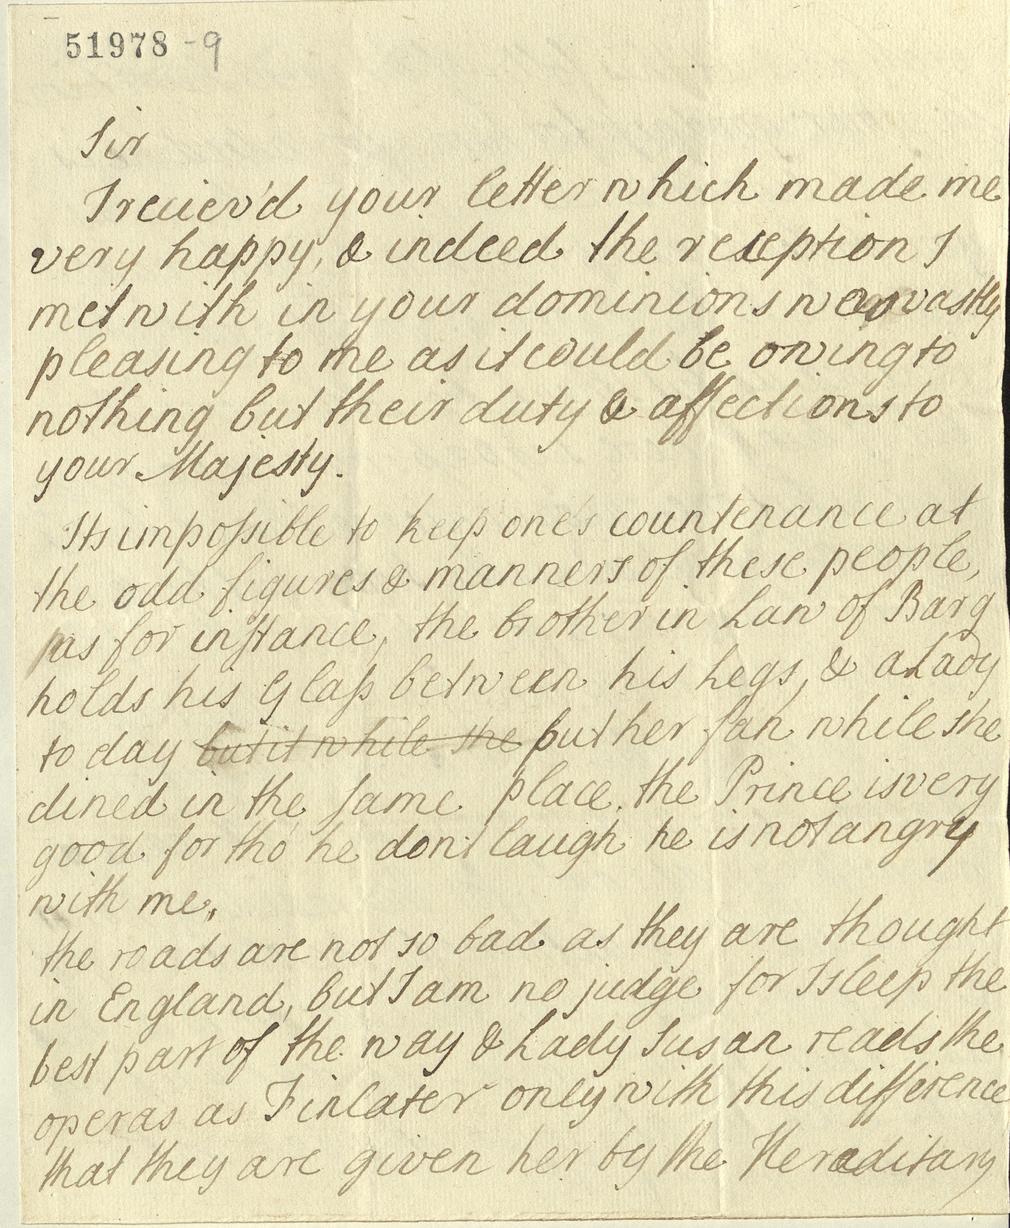 51978-9
Sir
I reciev'd your letter which made me
very happy, & indeed the reception I
met with in your dominions was vastly
pleasing to me as it could be owing to
nothing but their duty & affections to
your Majesty.
Its impossible to keep one's countenance at
the odd figures & manners of these people,
as for instance, the brother in Law of Barg
holds his Glass between his Legs, & a Lady
to day but it while she put her fan while she
dined in the same place. the Prince is very
good for tho' he don't laugh he is not angry
with me.
the roads are not so bad as they are thought
in England, but I am no judge for I sleep the
best part of the way & Lady Susan reads the
operas as Finlater only with this difference
that they are given her by the Hereditary